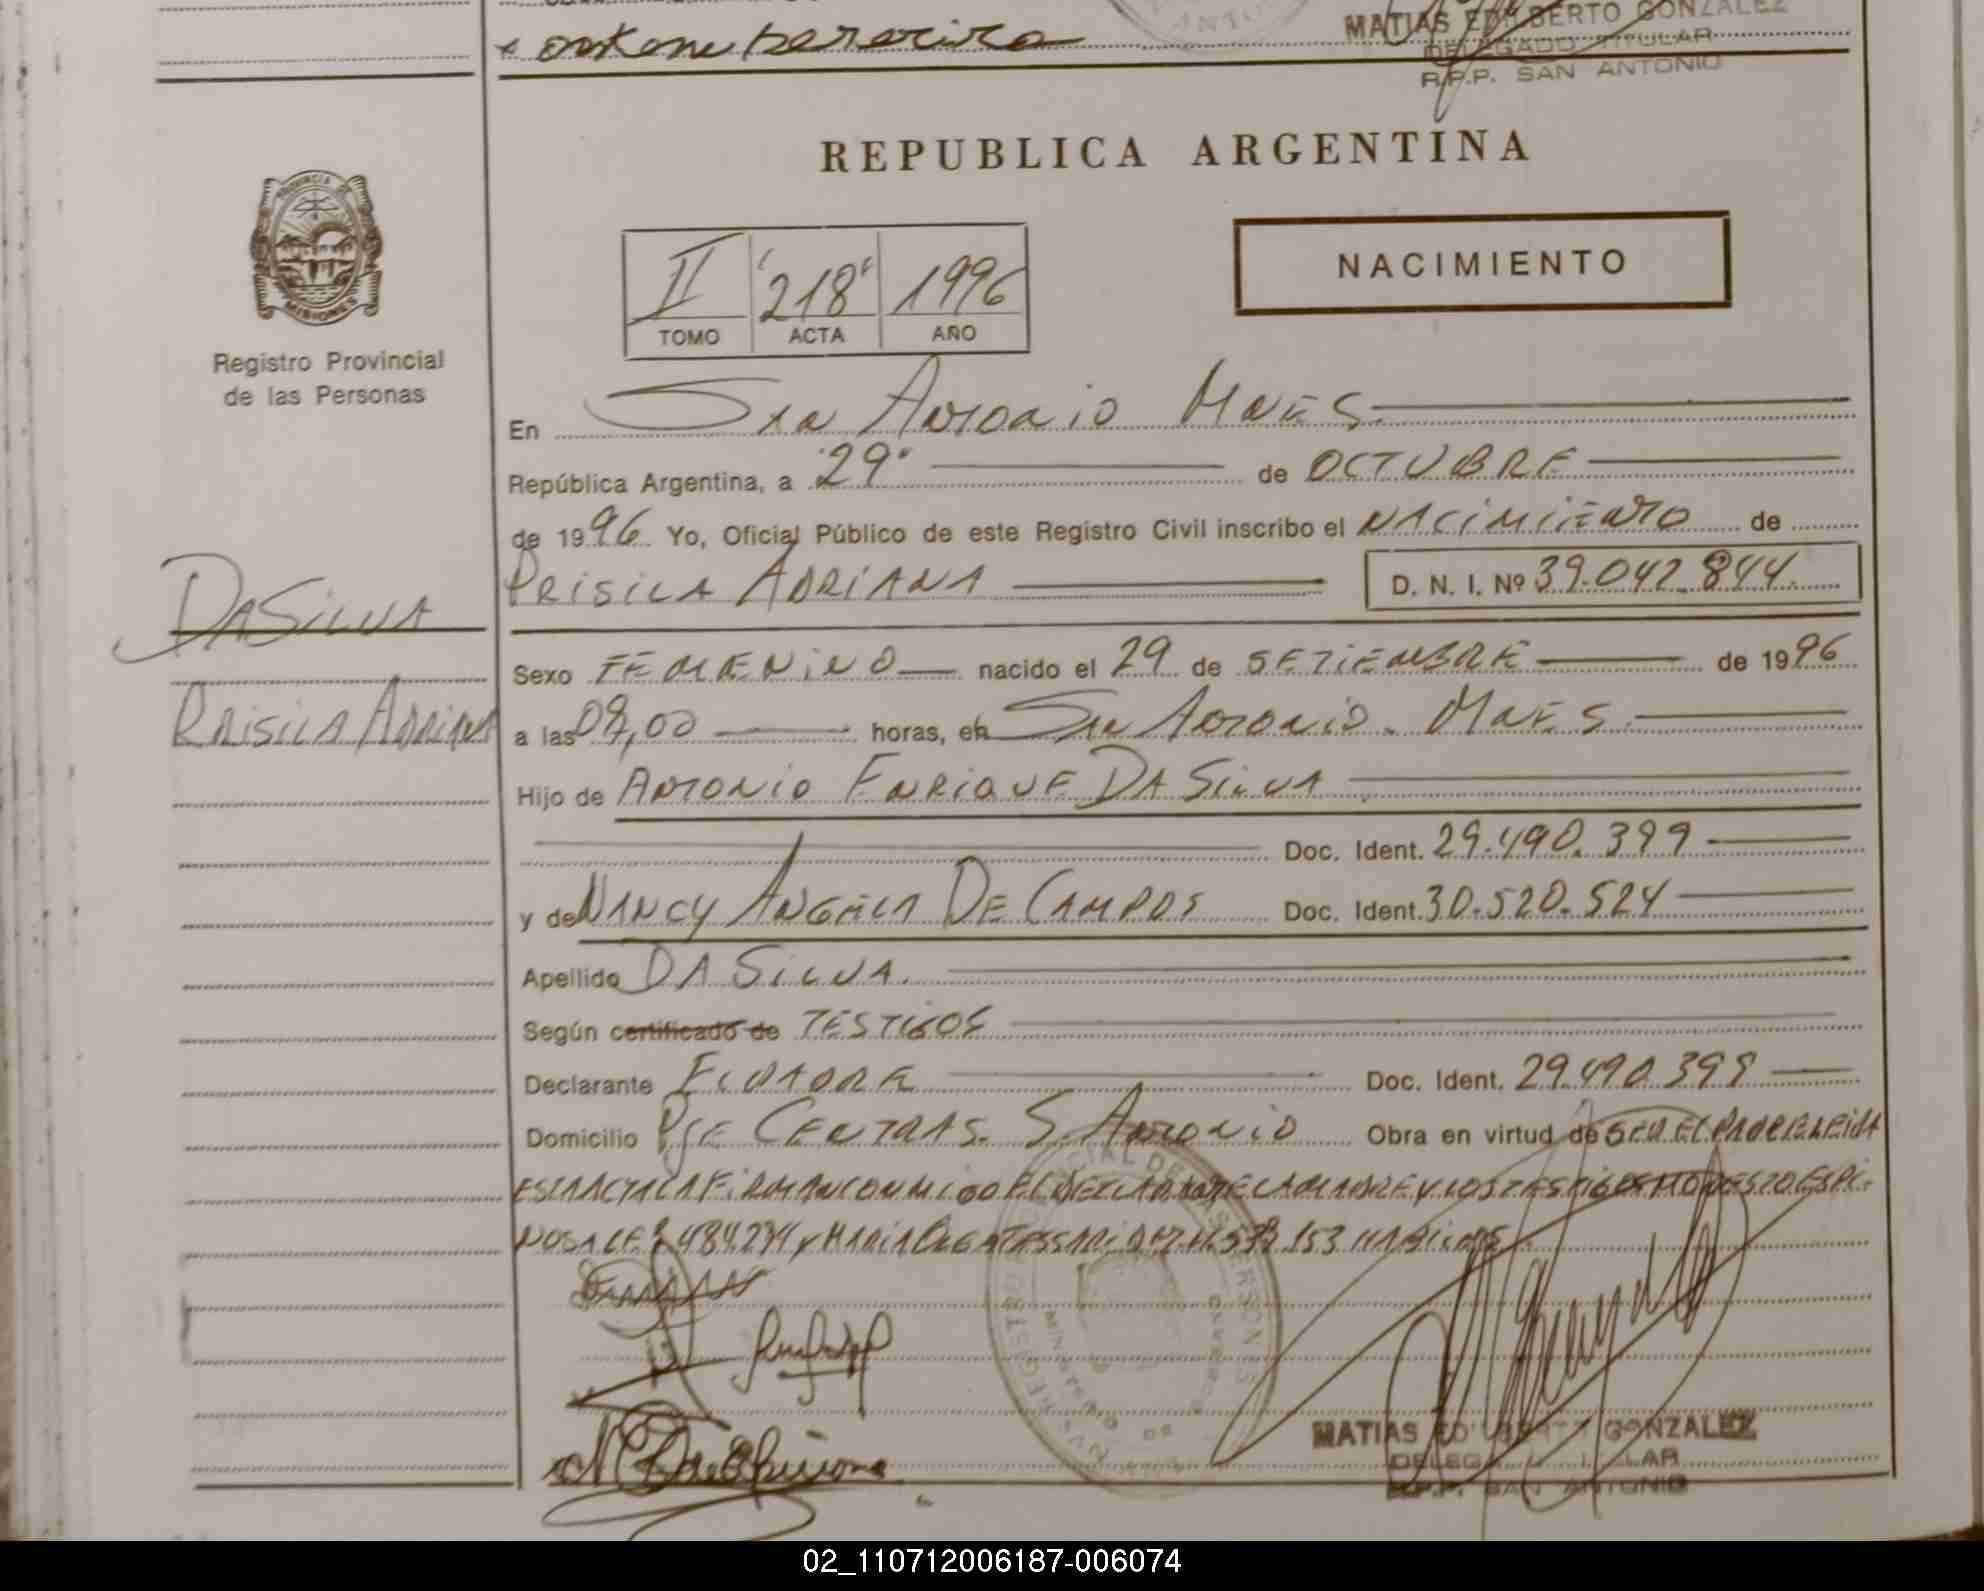 MATIAS EDILBERTO GONZALEZ
DELEGADO TITULAR
R.P.P. SAN ANTONIO
REPUBLICA ARGENTINA
PROVINCIA DE
MISIONES
Registro Provincial
de las Personas
II '218' 1996
TOMO ACTA AÑO
NACIMIENTO
En San Antonio Mnes
República Argentina, a 29 de OCTUBRE
de 1996 Yo, Oficial Público de este Registro Civil inscribo el NACIMIENTO de
PRISILA ADRIANA D. N. I. Nº 39.042.844
DA SILVA
PRISILA ADRIANA
Sexo FEMENINO nacido el 29 de SETIEMBRE de 1996
a las horas, en San Antonio. Mnes
Hijo de ANTONIO ENRIQUE DA SILVA
Doc. Ident. 29.490.399
y de NANCY ANGELA DE CAMPOS Doc. Ident. 30.520.524
Apellido DA SILVA.
Según certificado de TESTIGOS
Declarante Doc. Ident. 29.490.399
Domicilio S. Antonio Obra en virtud de SER EL PADRE LEIDA
EL ACTA LA FIRMAN CONMIGO EL DECLARANTE LA MADRE Y LOS TESTIGOS MODESTO ESPI-
NOSA 484.274 y MARIA 153
MATIAS EDILBERTO GONZALEZ
DELEGADO TITULAR
R.P.P. SAN ANTONIO
02_110712006187-006074